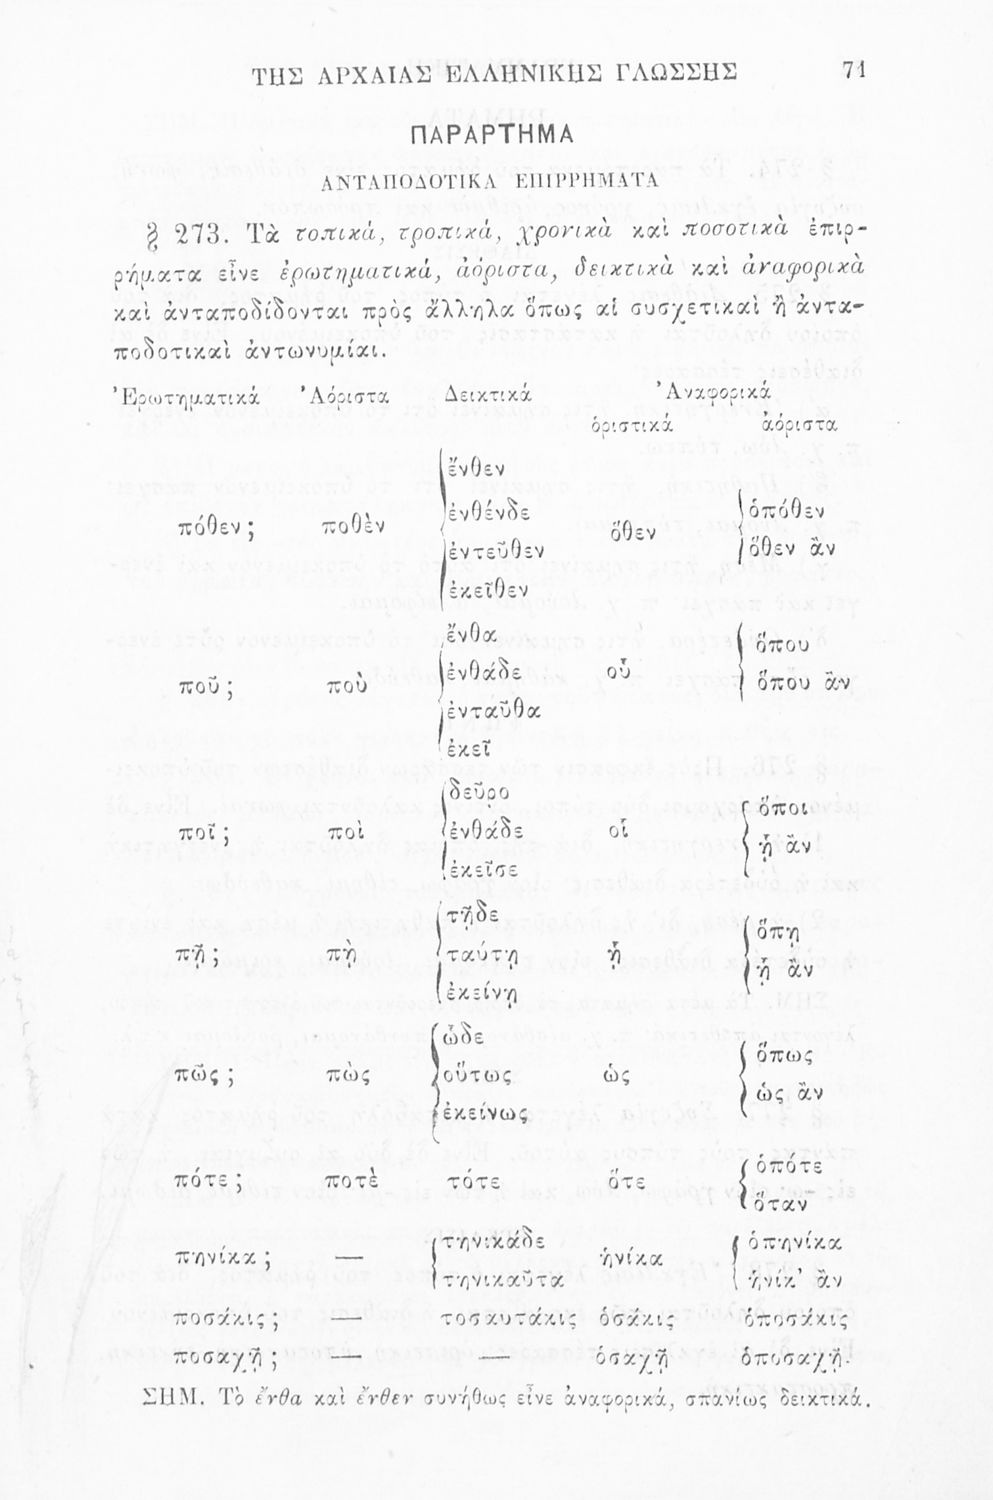 ΤΗΣ ΑΡΧΑΙΑΣ ΕΛΛΗΝΙΚΗΣ ΓΛΩΣΣΗΣ 71
ΠΑΡΑΡΤΗΜΑ
ΑΝΤΑΠΟΔΟΤΙΚΑ ΕΠΙΡΡΗΜΑΤΑ
§ 273. Τὰ τοπικά, τροπικά, χρονικὰ καὶ ποσοτικὰ ἐπιρ-
ρήματα εἶνε ἐρωτηματικά, ἀόριστα, δεικτικὰ καὶ ἀναφορικὰ
καὶ ἀνταποδίδονται πρὸς ἄλληλα ὅπως αἱ συσχετικαὶ ἢ ἀντα-
ποδοτικαὶ ἀντωνυμίαι.
Ἐρωτηματικά Ἀόριστα Δεικτικά Ἀναφορικά
ὁριστικά ἀόριστα
ἔνθεν
ἐνθένδε ὁπόθεν
πόθεν; ποθὲν ὅθεν
ἐντεῦθεν ὅθεν ἂν
ἐκεῖθεν
ἔνθα ὅπου
ἐνθάδε
ποῦ; ποὺ οὗ ὅπου ἂν
ἐνταῦθα
ἐκεῖ
δεῦρο ὅποι
ποῖ; ποὶ ἐνθάδε οἷ
ᾗ ἂν
ἐκεῖσε
τῇδε ὅπῃ
πῇ; πὴ ταύτῃ ᾗ
ᾗ ἂν
ἐκείνῃ
ὧδε ὅπως
πῶς; πὼς οὕτως ὡς
ὡς ἂν
ἐκείνως
ὁπότε
πότε; ποτὲ τότε ὅτε
ὅταν
τηνικάδε ὁπηνίκα
πηνίκα; — ἡνίκα
τηνικαῦτα ἡνίκ' ἂν
ποσάκις; — τοσαυτάκις ὁσάκις ὁποσάκις
ποσαχῇ; — — ὁσαχῇ ὁποσαχῇ.
ΣΗΜ. Τὸ ἔνθα καὶ ἔνθεν συνήθως εἶνε ἀναφορικά, σπανίως δεικτικά.